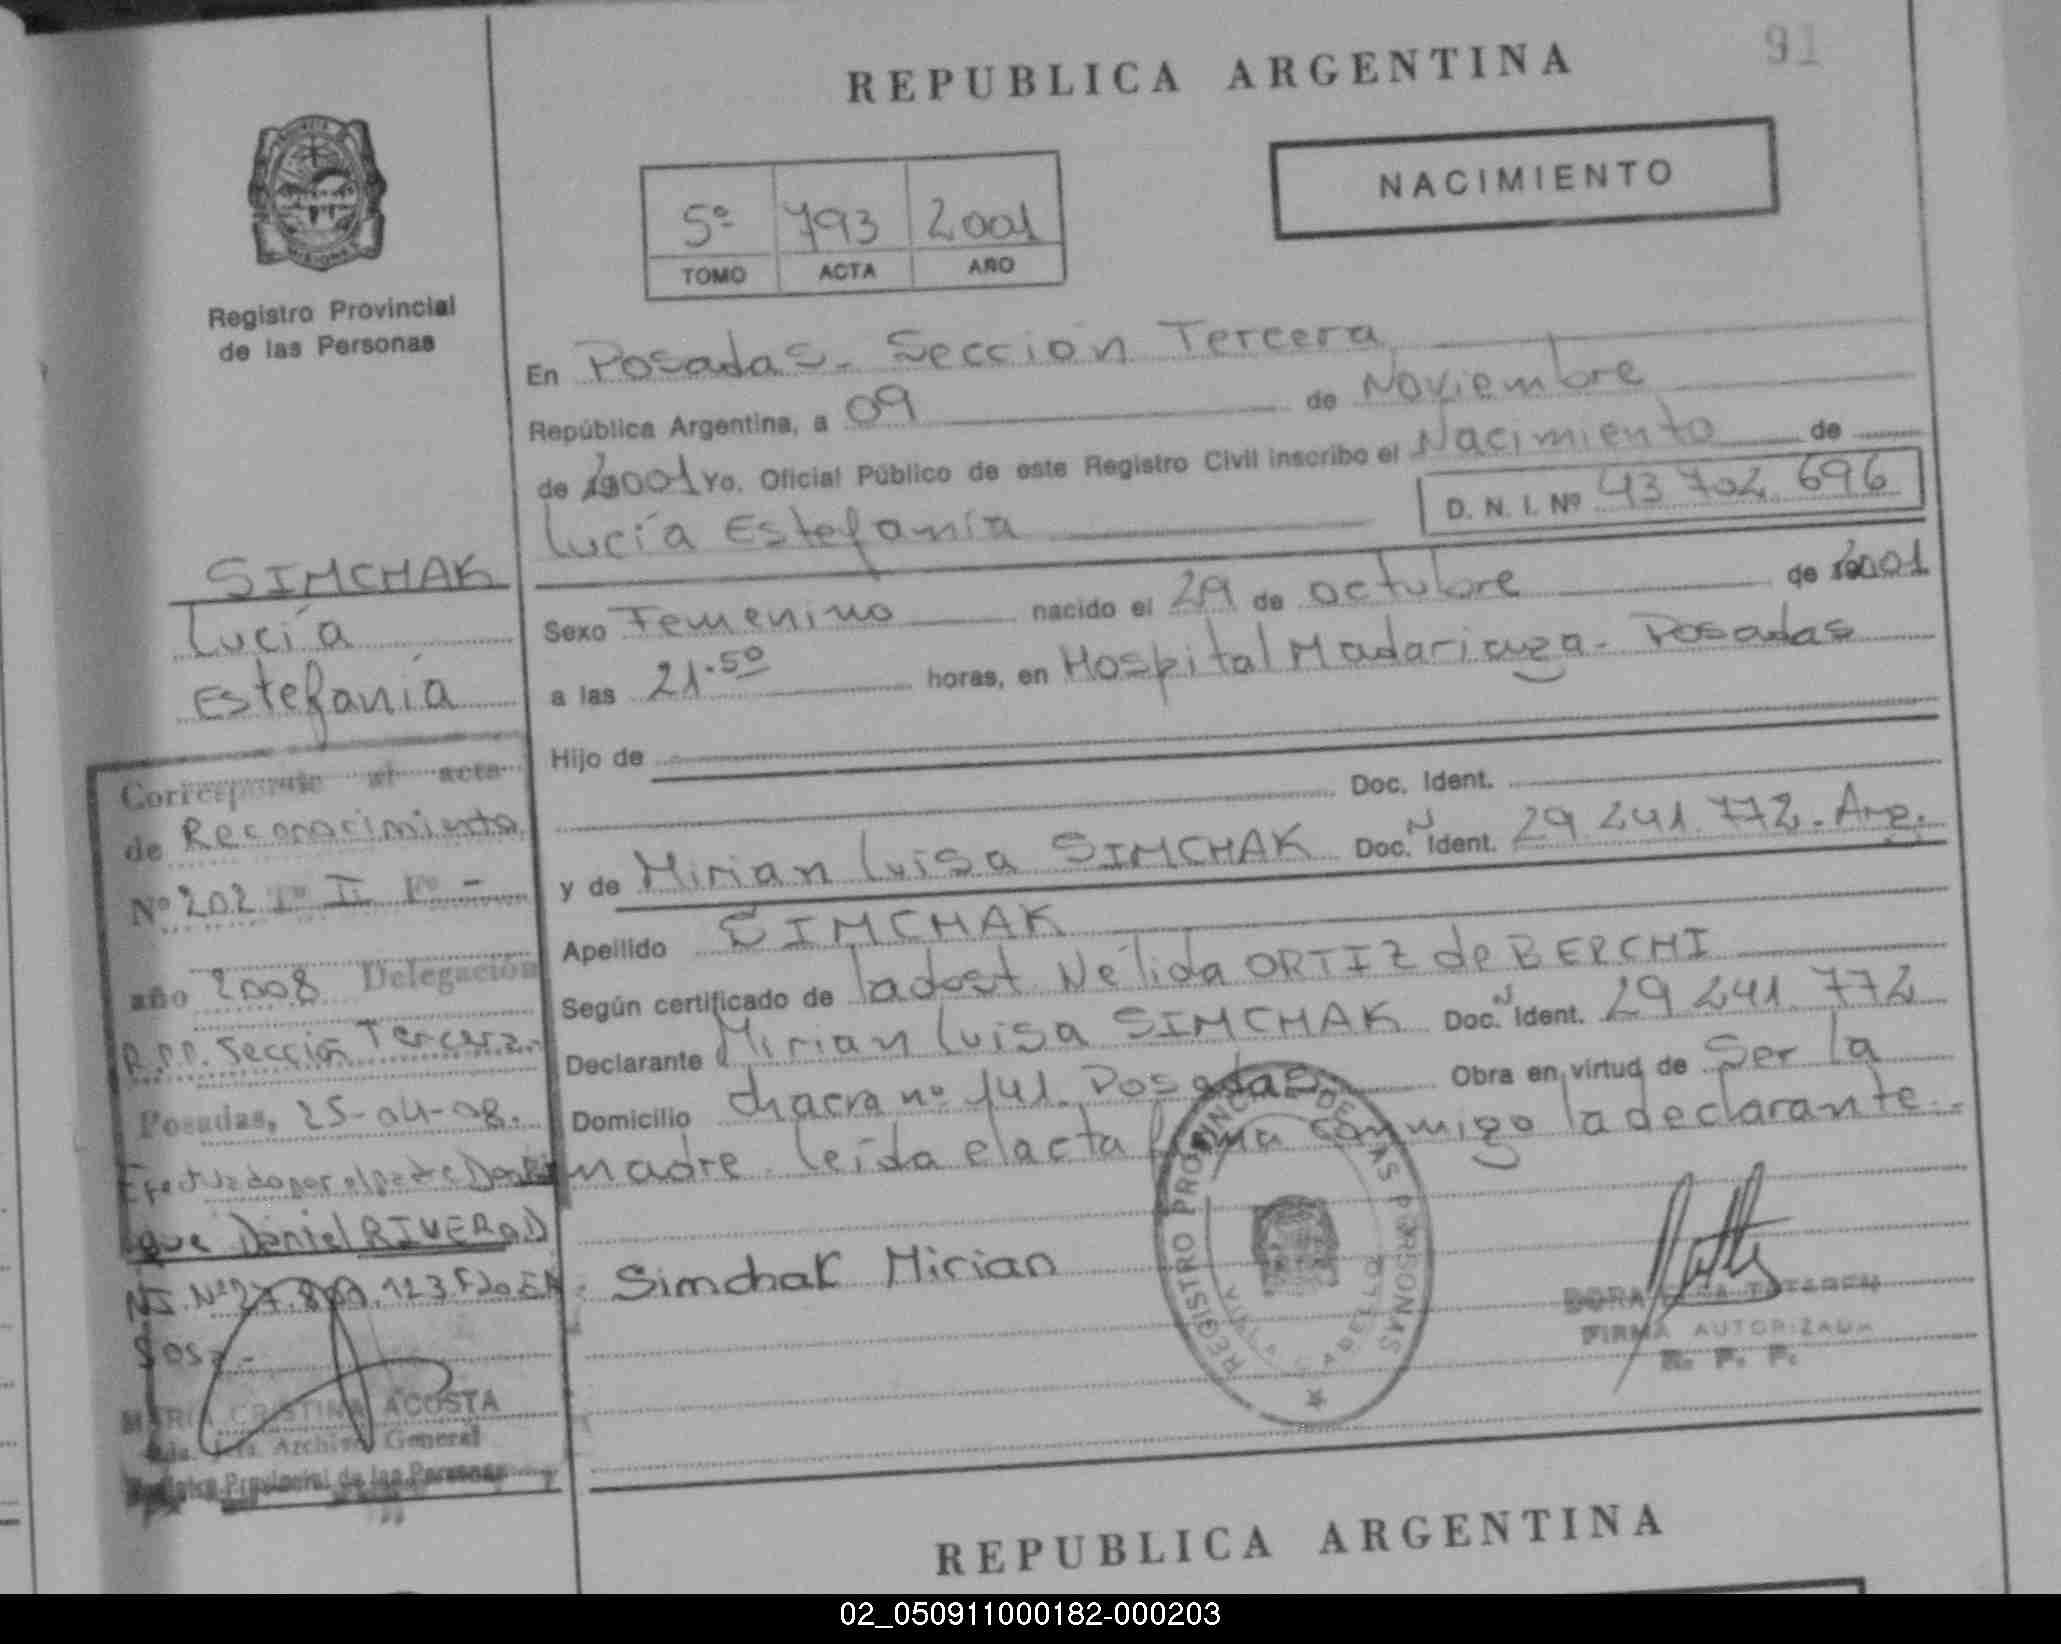 91
REPUBLICA ARGENTINA
NACIMIENTO
5º 793 2001
TOMO ACTA AÑO
Registro Provincial
de las Personas
SIMCHAK
Lucía
Estefanía
Corresponde al acta
de Reconocimiento
Nº 202 Tº II Fº -
año 2008 Delegación
R.P.P. Sección Tercera.-
Posadas, 25-04-08.
Efectuado por el padre
que Daniel RIVERO D
NI. Nº 123
MARIA CRISTINA ACOSTA
Archivo General
Registro Provincial de las Personas
En Posadas - Sección Tercera
República Argentina, a 09 de Noviembre
de 2001 Yo. Oficial Público de este Registro Civil inscribo el Nacimiento de
Lucía Estefanía D. N. I. Nº 43 702 696
Sexo Femenino nacido el 29 de octubre de 2001
a las 21.50 horas, en Hospital Madariaga - Posadas
Hijo de
Doc. Ident.
y de Mirian Luisa SIMCHAK Doc. N Ident. 29 241 772. Arg.
Apellido SIMCHAK
Según certificado de Nélida ORTIZ de BERCHI
Declarante Mirian Luisa SIMCHAK Doc. N Ident. 29 241 772
Domicilio chacra nº 141. Posadas Obra en virtud de Ser la
madre. Leída el acta firma conmigo la declarante.-
Simchak Mirian
REGISTRO PROVINCIAL DE LAS PERSONAS
FIRMA AUTORIZADA
R. P. P.
REPUBLICA ARGENTINA
02_050911000182-000203